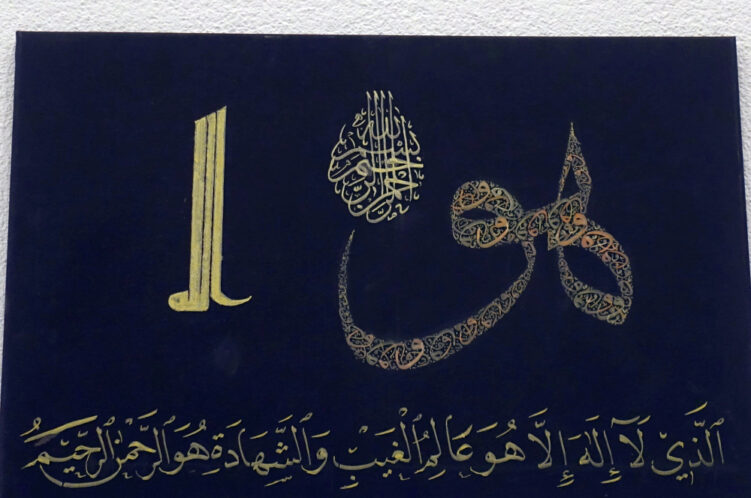 بسم الله الرحمن الرحيم
هو الله
ٱلَّذِي لَآ إِلَهَ إِلَّا هُوَ عَالِمُ ٱلْغَيْبِ وَٱلشَّهَادَةِ هُوَ ٱلرَّحْمَنُ ٱلرَّحِيمُ